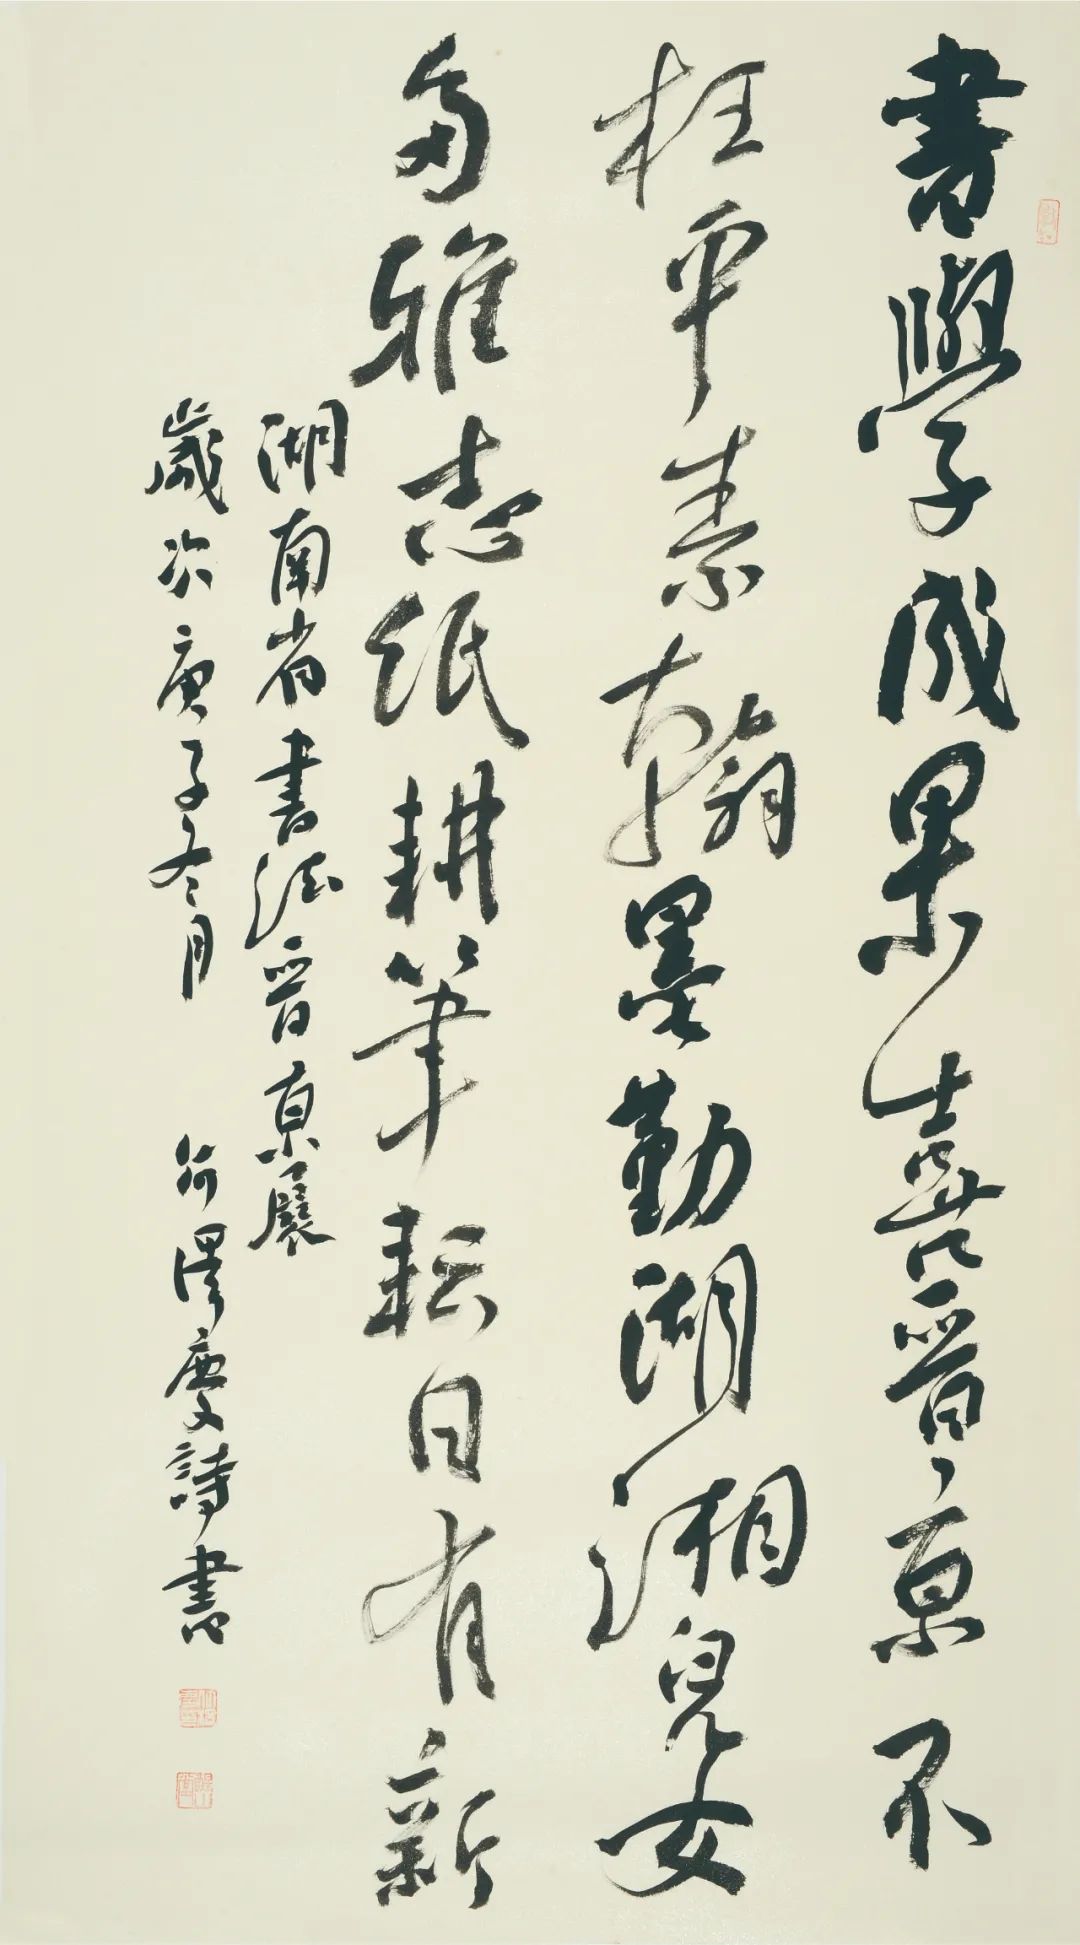 書學成果喜晉京不
枉平素翰墨勤湖湘兒女
多雅志紙耕筆耘日有新
湖南省書法晉京展
歲次庚子冬月 何澤慶詩書